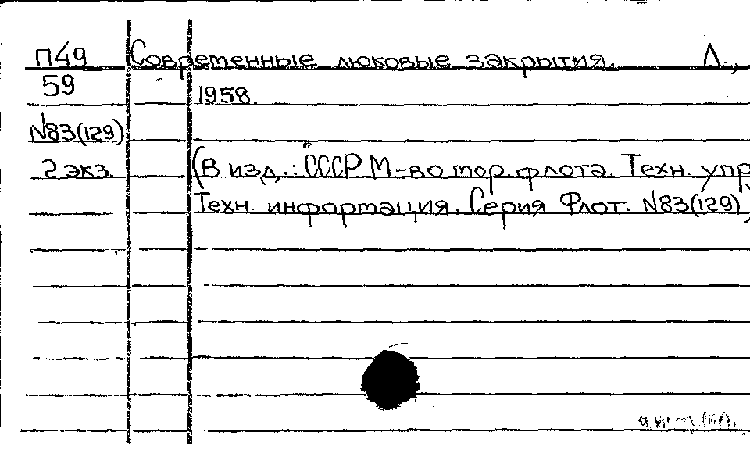 П49 Современные люковые закрытия. Л.,
59 1958.
N83(129)
2 экз. (В изд.: СССР М-во мор. флота. Техн. упр
Техн. информация. Серия Флот. N83(129)